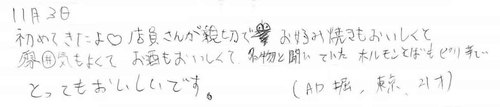 11月3日
初めてきたよ♡ 店員さんが親切で お好み焼きもおいしくと
雰囲気もよくて お酒もおいしくて 名物と聞いていた ホルモンそばもピリ辛で
とってもおいしいです。 (AD 堀、東京、21才)